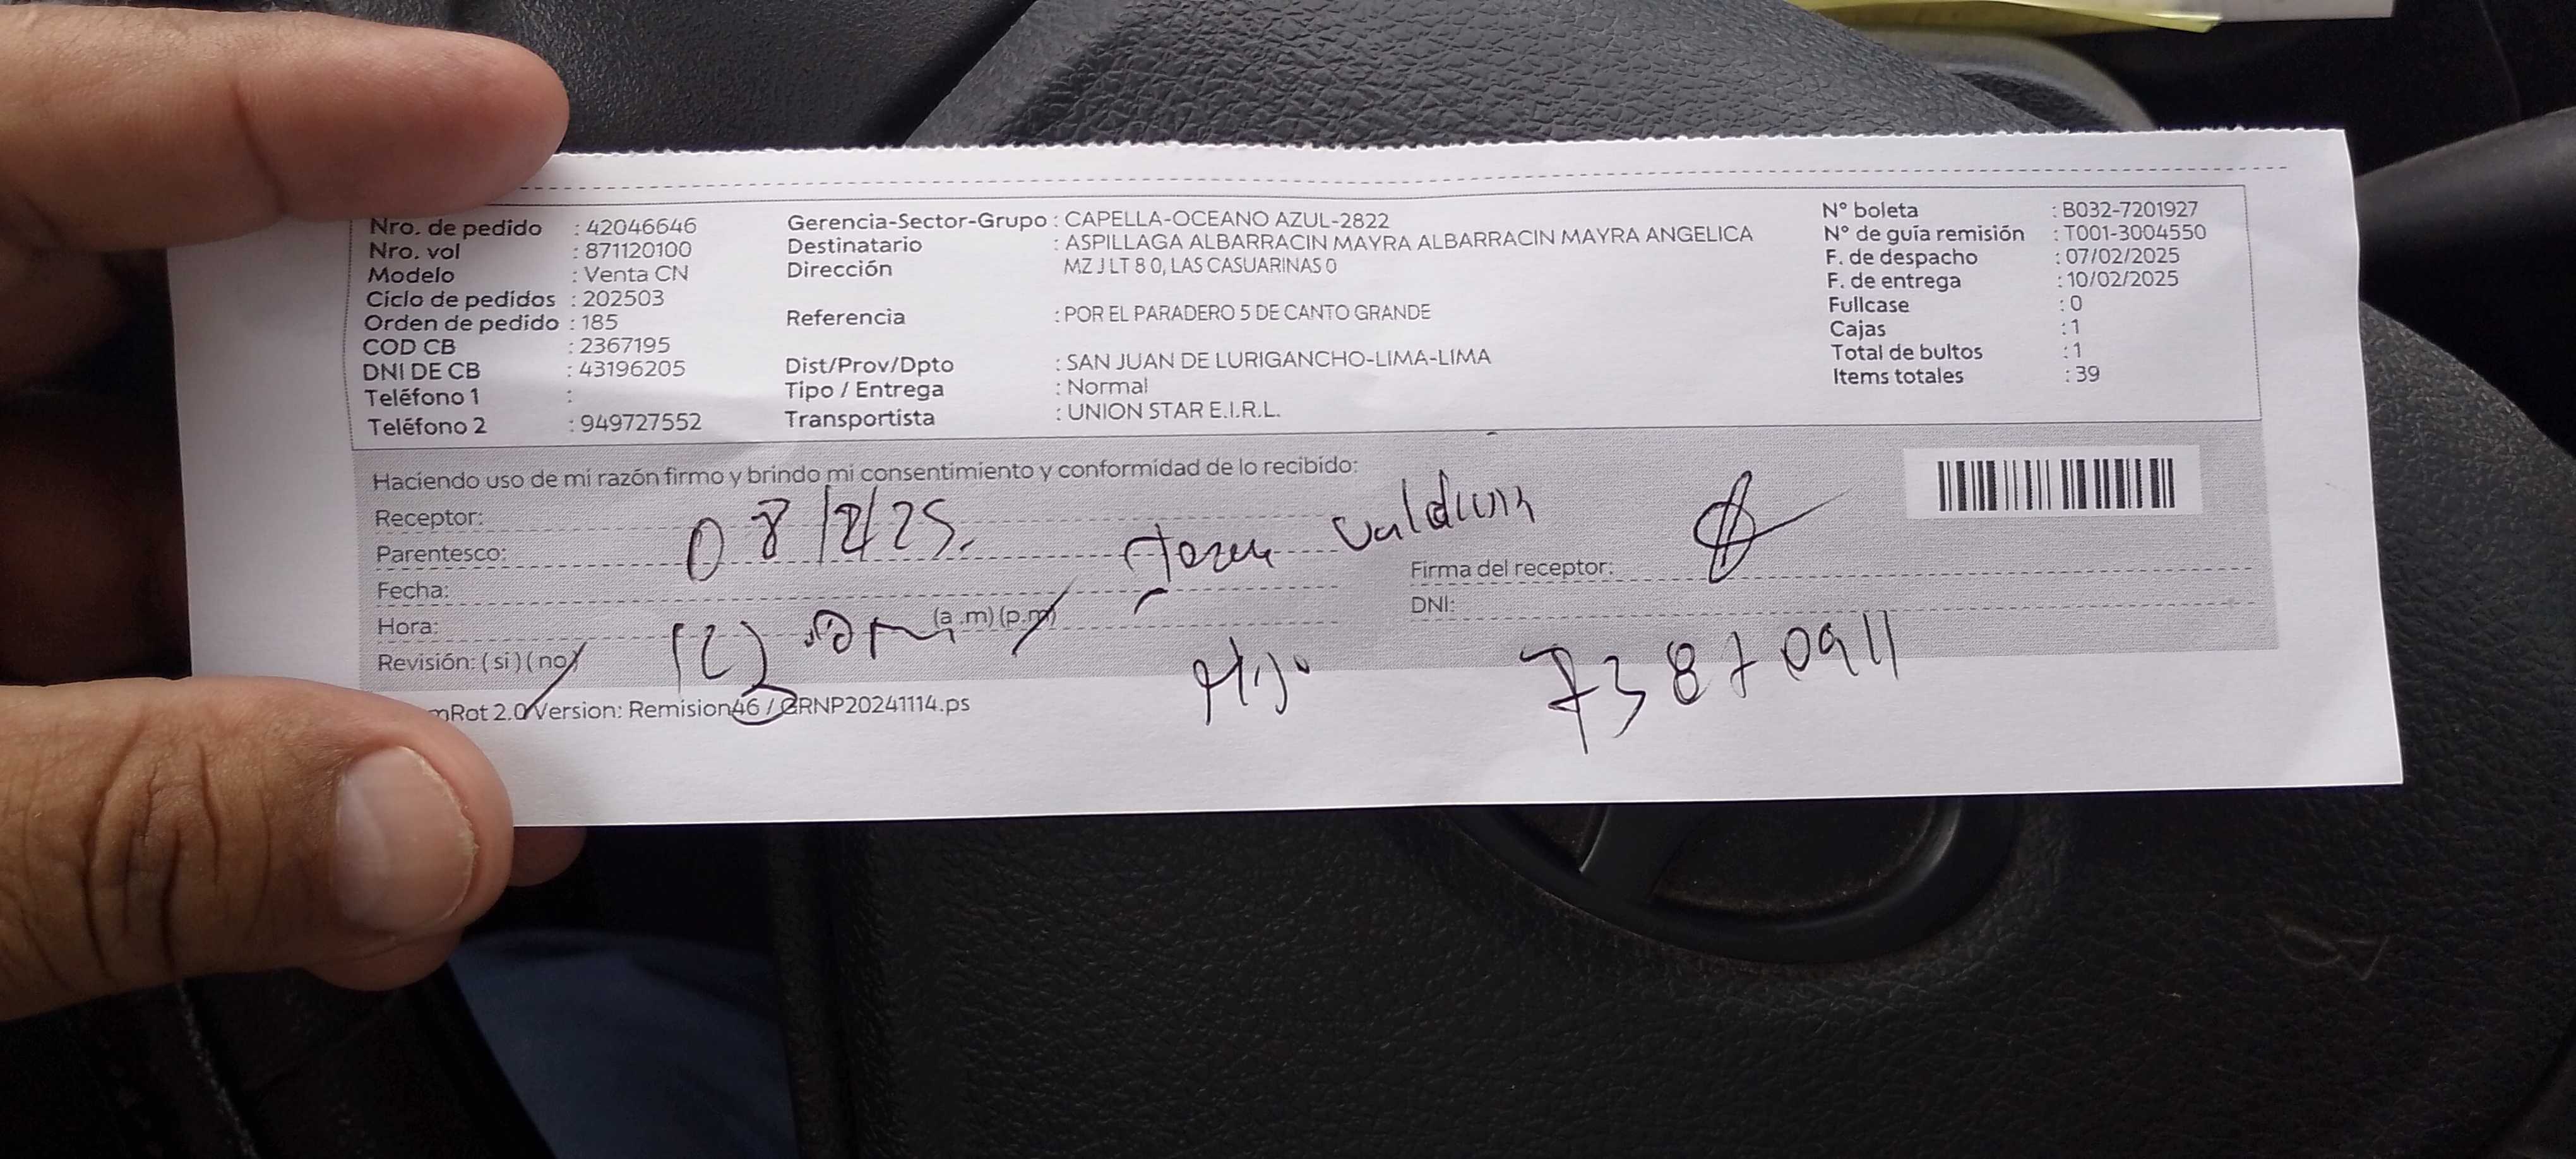 Nro. de pedido : 42046646
Nro. vol : 871120100
Modelo : Venta CN
Ciclo de pedidos : 202503
Orden de pedido : 185
COD CB : 2367195
DNI DE CB : 43196205
Teléfono 1 :
Teléfono 2 : 949727552
Gerencia-Sector-Grupo : CAPELLA-OCEANO AZUL-2822
Destinatario : ASPILLAGA ALBARRACIN MAYRA ALBARRACIN MAYRA ANGELICA
Dirección MZ J LT 8 0, LAS CASUARINAS 0
Referencia : POR EL PARADERO 5 DE CANTO GRANDE
Dist/Prov/Dpto : SAN JUAN DE LURIGANCHO-LIMA-LIMA
Tipo / Entrega : Normal
Transportista : UNION STAR E.I.R.L.
N° boleta : B032-7201927
N° de guía remisión : T001-3004550
F. de despacho : 07/02/2025
F. de entrega : 10/02/2025
Fullcase : 0
Cajas : 1
Total de bultos : 1
Items totales : 39
Haciendo uso de mi razón firmo y brindo mi consentimiento y conformidad de lo recibido:
Receptor:
Parentesco: 08/2/25
Fecha:
Hora: (a.m) (p.m)
Revisión: (si) (no)
Firma del receptor:
DNI:
Hijo 73870911
mRot 2.0 Version: Remision46 / GRNP20241114.ps